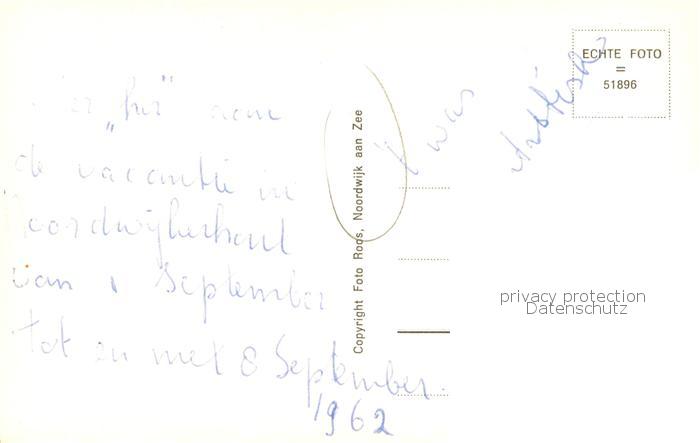 "hier" aan
de vacantie in
Noordwijkerhout
van 1 September
tot en met 8 September
1962
was
Copyright Foto Roos, Noordwijk aan Zee
ECHTE FOTO
=
51896
privacy protection
Datenschutz